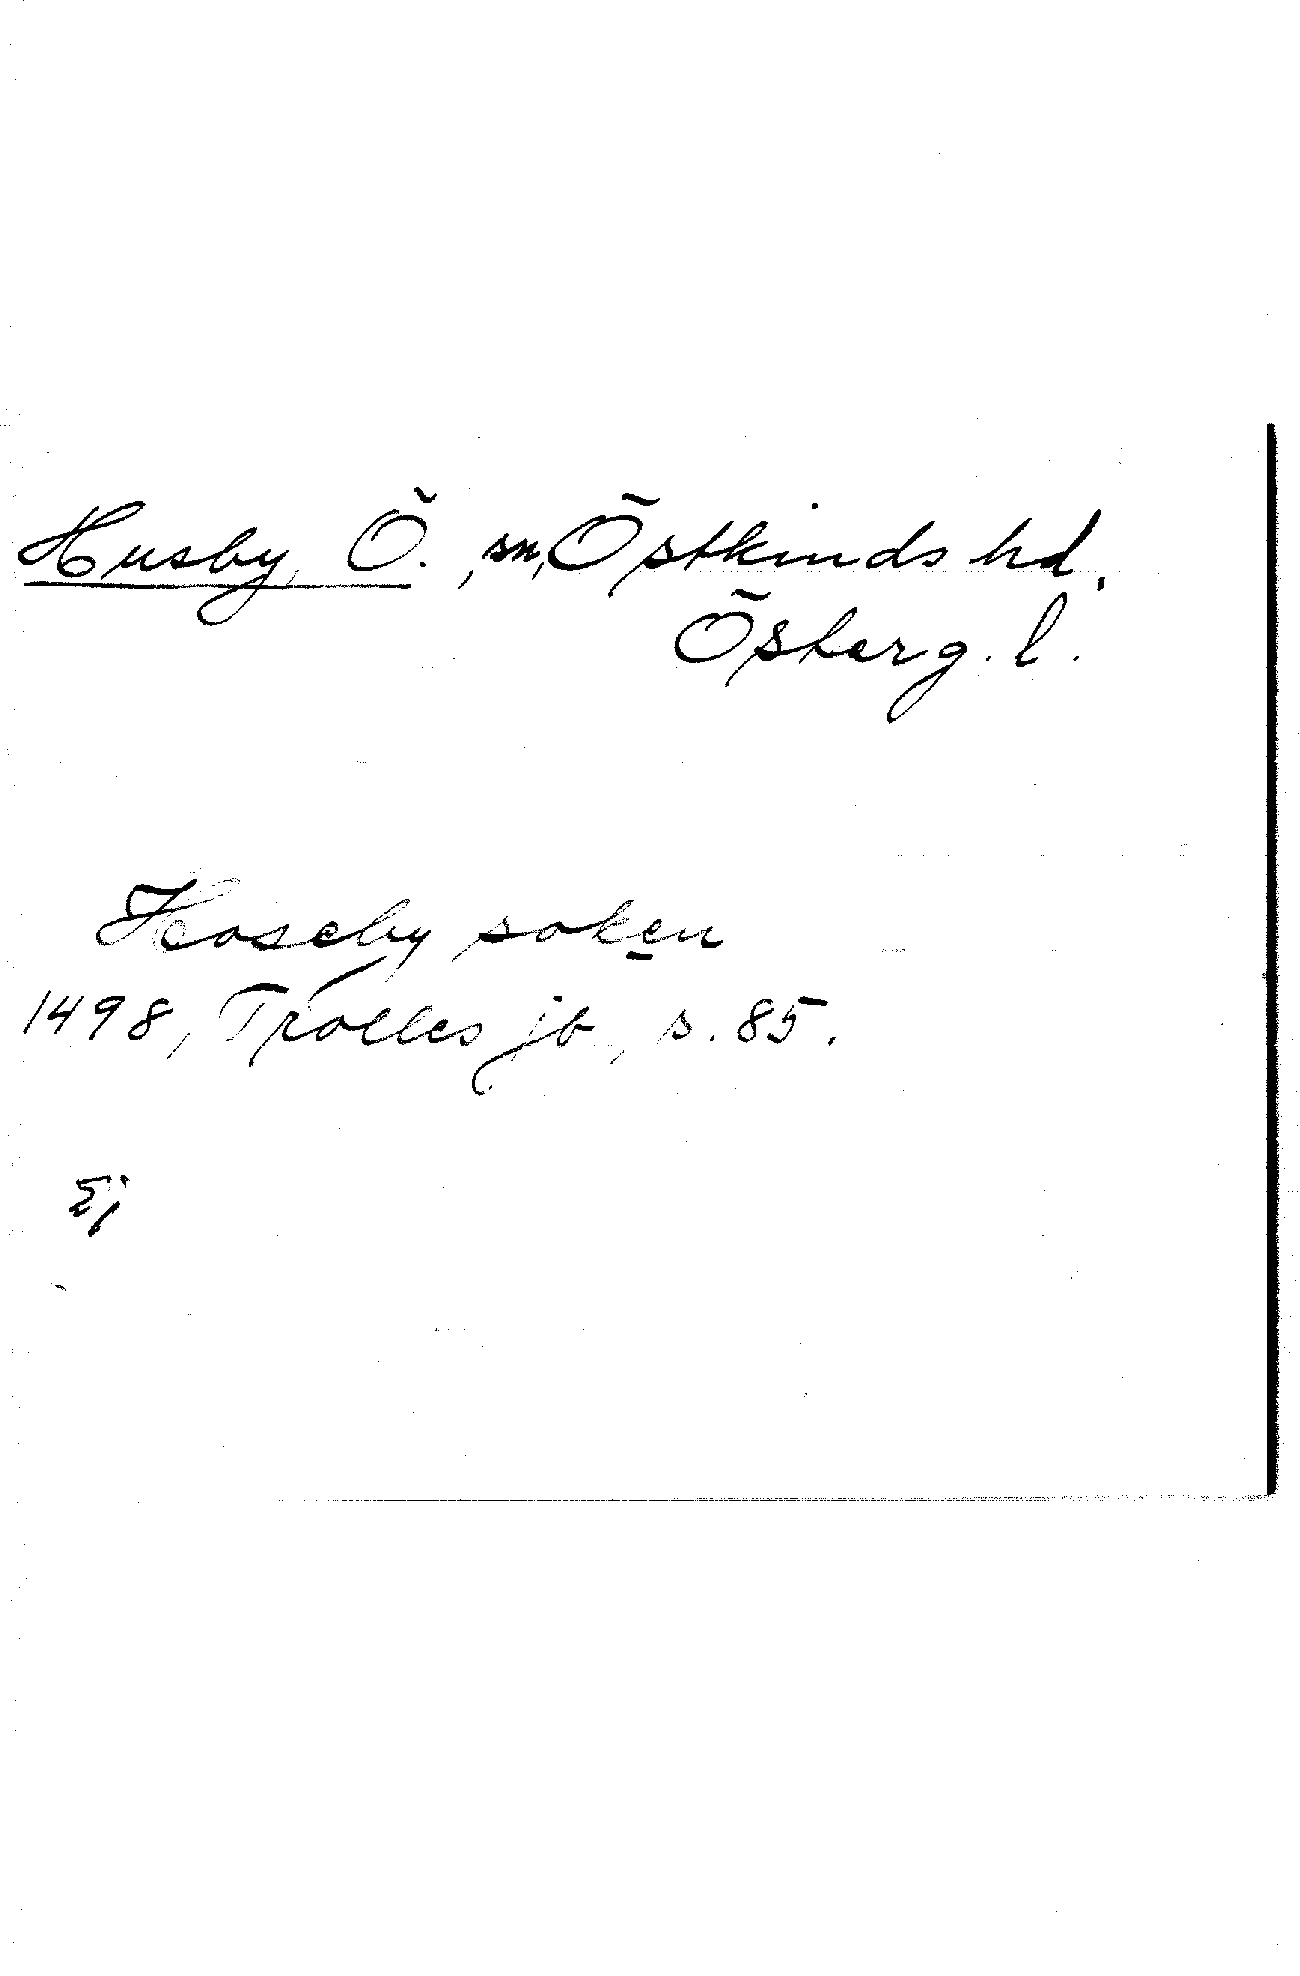 Husby, Ö., sn, Östkinds hd,
Österg. l.
Hoseby soken
1498, Trolles jb, s. 85.
Ej